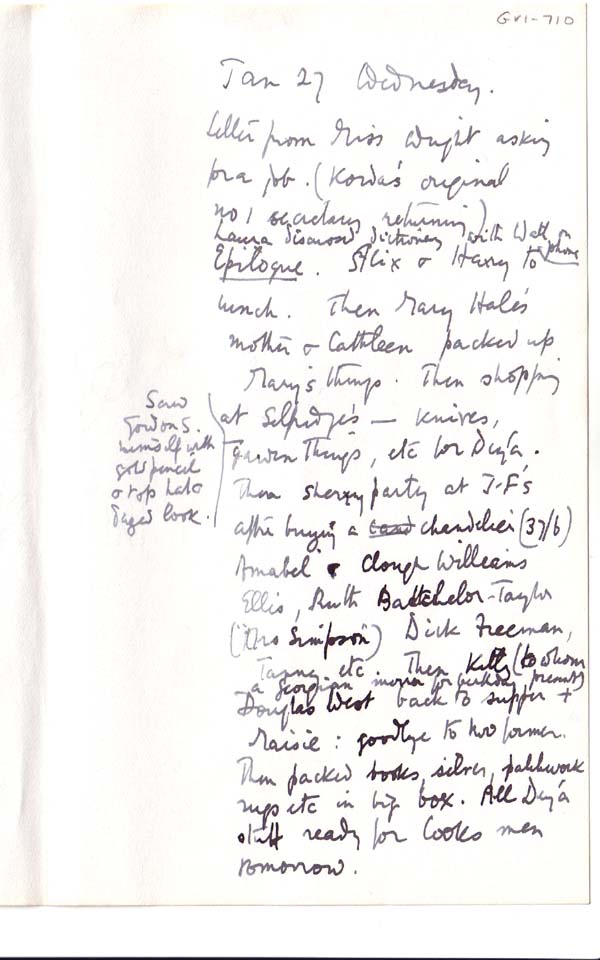 GVI-710
Jan 27 Wednesday.
Letter from Miss Wright asking
for a job. (Korda's original
no 1 secretary returning)
Laura discussed dictionary with Watt on phone
Epilogue. Alix & Harry to
lunch. Then Mary Hale's
mother & Cathleen packed up
Mary's things. Then shopping
at Selfridge's — knives,
garden things, etc for Deyá.
Then sherry party at J-F's
after buying a chandelier (37/6)
Amabel & Clough Williams
Ellis, Ruth Battchelor-Taylor
("Mrs Simpson") Dick Freeman,
etc. Then Kitty (to whom
a Georgian mirror for birthday present)
Douglas West back to supper +
Maisie: goodbye to two former.
Then packed books, silver, patchwork
rugs etc in big box. All Deyá
stuff ready for Cooks men
tomorrow.
Saw
Gordon S.
himself with
gold pencil
& top hat &
look.